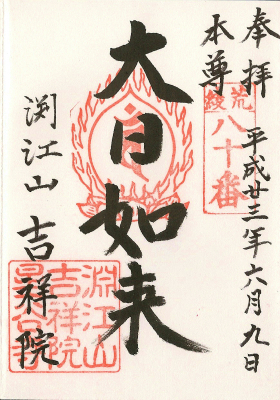 奉拝 平成廿三年六月九日
本尊
荒綾
八十番
大日如来
渕江山 吉祥院
淵江山
吉祥院